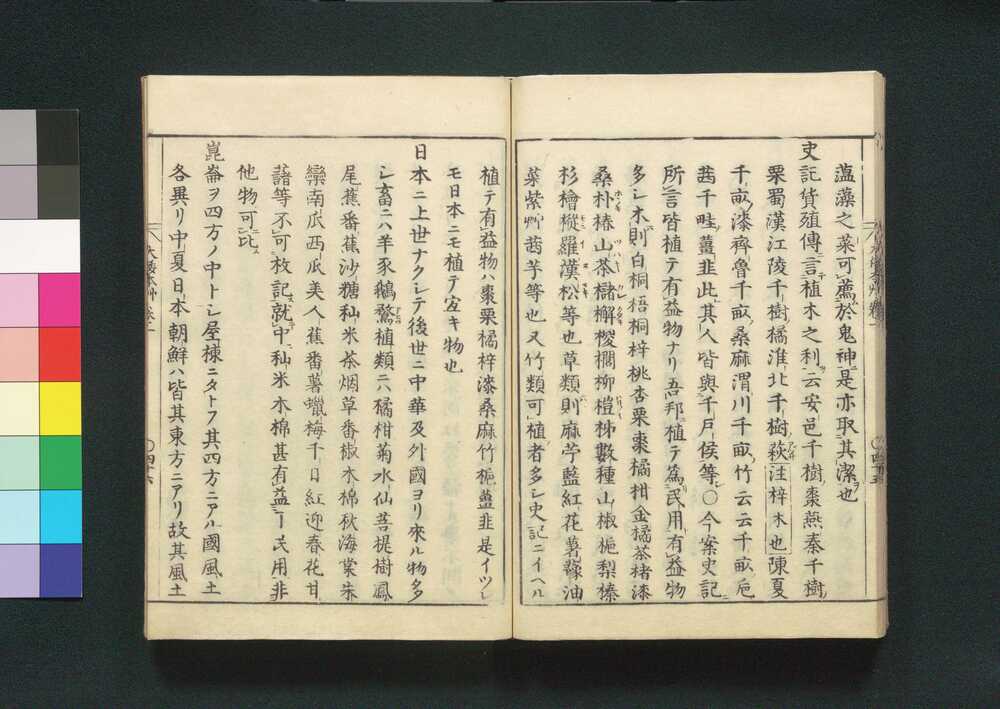 薀藻之菜可薦於鬼神是亦取其潔也
史記貨殖傳言植木之利云安邑千樹棗燕秦千樹
栗蜀漢江陵千樹橘淮北千樹萩注梓木也陳夏
千畝漆齊魯千畝桑麻渭川千畝竹云云千畝巵
茜千畦薑韭此其人皆與千戸侯等〇今案史記
所言皆植テ有益物ナリ吾邦植テ為民用有益物
多シ木則白桐梧桐梓桃杏栗棗橘柑金橘茶楮漆
桑朴椿山茶櫧檞椶櫚柳榿柹數種山椒梔梨榛
杉檜樅羅漢松等也草類則麻苧藍紅花薯蕷油
菜紫艸茜芋等也又竹類可植者多シ史記ニイヘル
植テ有益物ハ棗栗橘梓漆桑麻竹梔薑韭是イツレ
モ日本ニモ植テ宜キ物也
日本ニ上世ナクシテ後世ニ中華及外國ヨリ來ル物多
シ畜ニハ羊豕鵝鶩植類ニハ橘柑菊水仙菩提樹鳳
尾蕉番蕉沙糖秈米茶烟草番椒木棉秋海棠朱
欒南瓜西瓜美人蕉番薯蠟梅千日紅迎春花甘
藷等不可枚記就中秈米木棉甚有益于民用非
他物可比
崑崙ヲ四方ノ中トシ屋棟ニタトフ其四方ニアル國風土
各異リ中夏日本朝鮮ハ皆其東方ニアリ故其風土
〇四十六